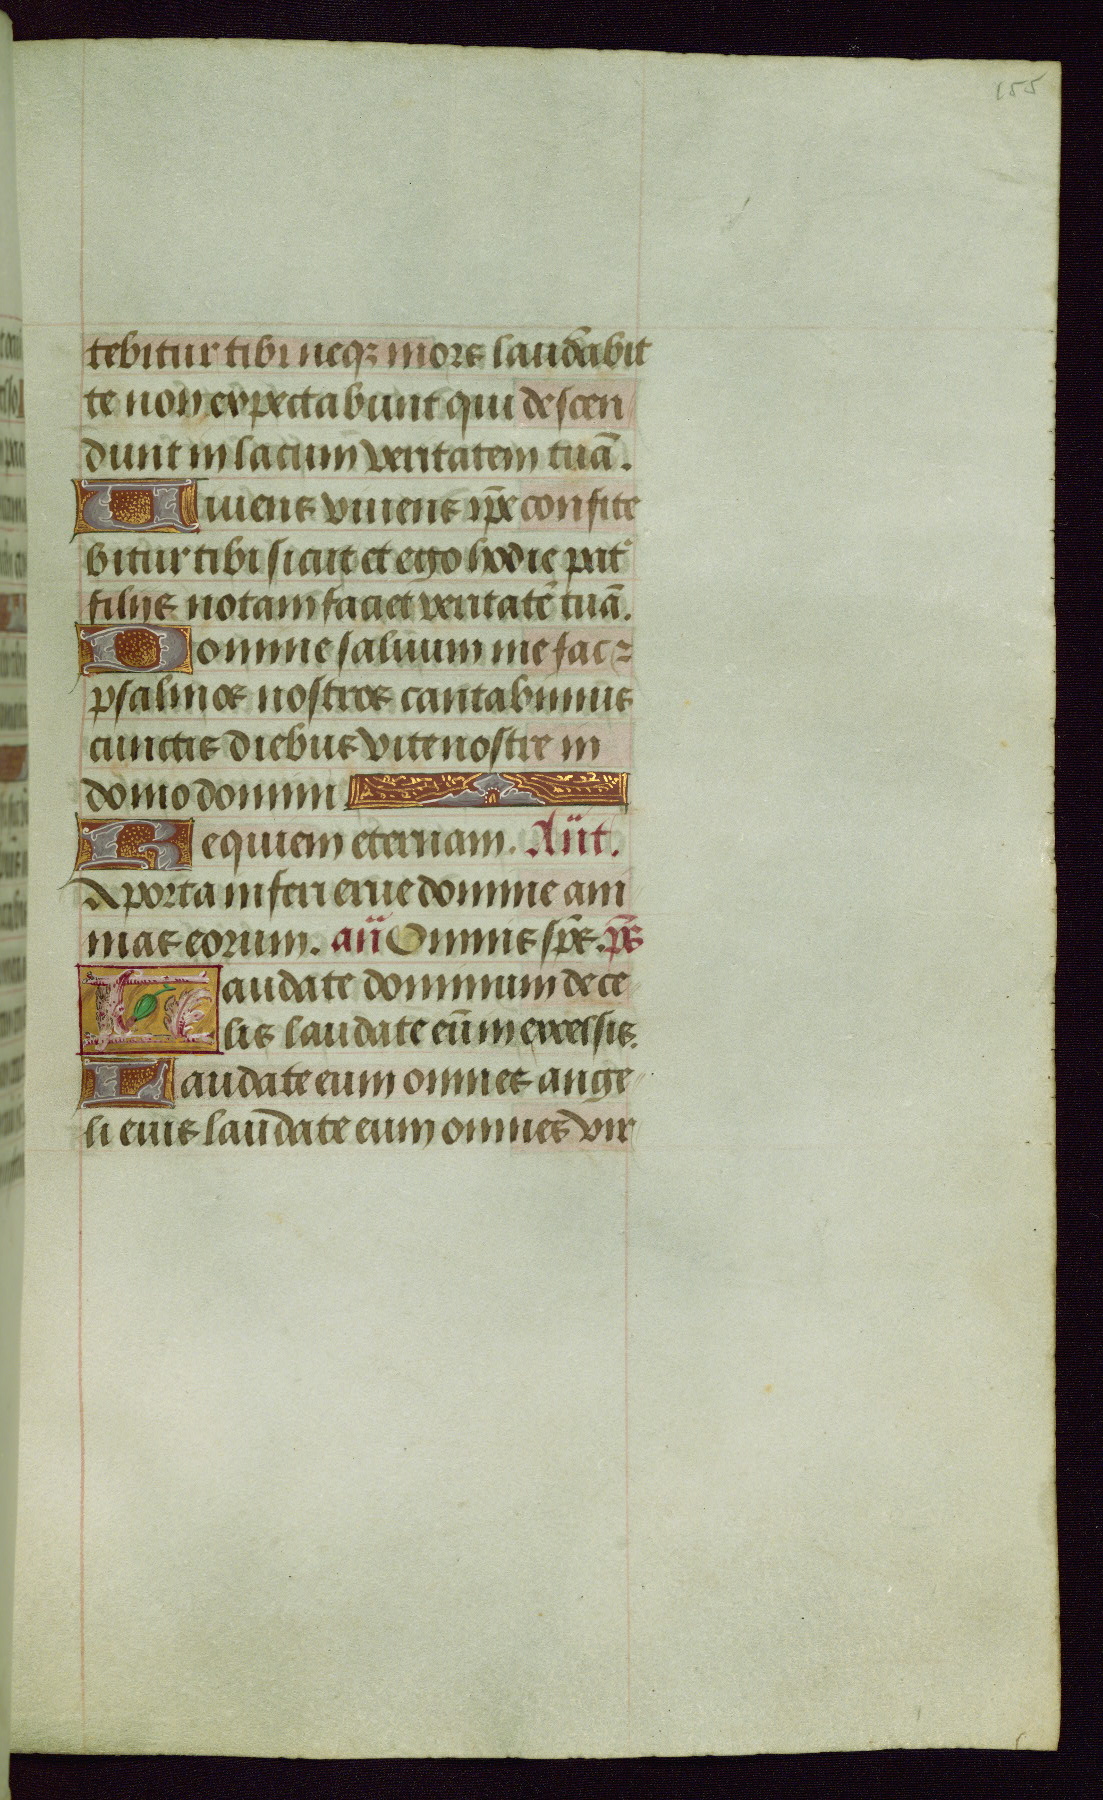 155
tebitur tibi neqꝫ mors laudābit
te non expectabunt qui descen
dunt in lacum veritatem tuā.
Uiuens viuens ip̄e confite
bitur tibi sicut et ego hodie pat̉
filijs notam faciet veritatē tuā.
Domine saluum me fac ⁊
psalmos nostros cantabimus
cunctis diebus vite nostre in
domo domini
Requiem eternam. An̄t.
A porta inferi erue domine ani
mas eorum. an̄ Omnis sp̄s. p̄s
Laudate dominum de ce
lis laudate eū in excelsis.
Laudate eum omnes ange
li eius laudate eum omnes vir